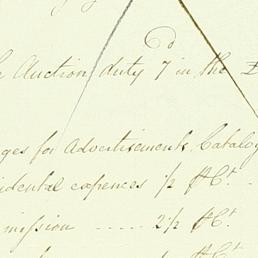 d
Auction duty 7 in the £
ges for Advertisements, Catalog
idental expences 1/2 ⅌ Ct.
mission ..... 2 1/2 ⅌ Ct.
⅌ Ct.